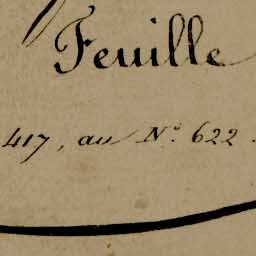 Feuille
417, au N.° 622.